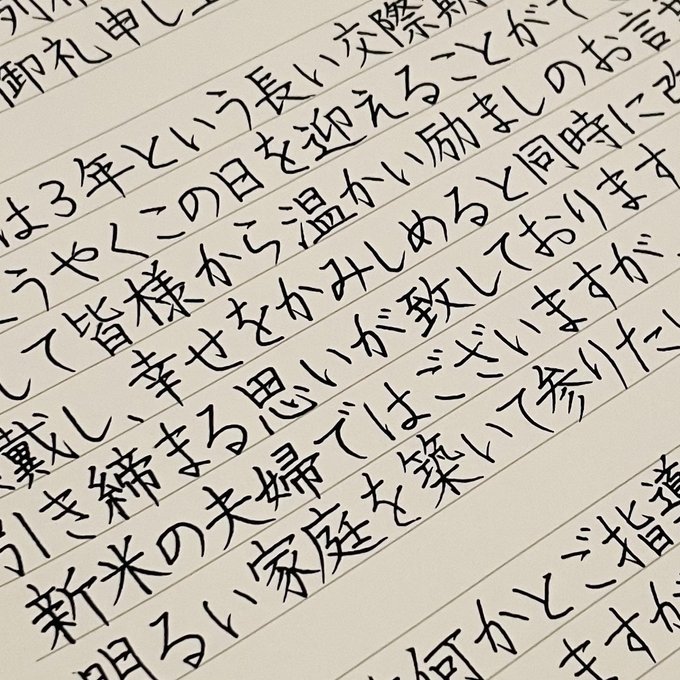 御礼申し上
は3年という長い交際期
ようやくこの日を迎えることがで
して皆様から温かい励ましのお言
戴し、幸せをかみしめると同時に改
引き締まる思いが致しております
新米の夫婦ではございますが、
明るい家庭を築いて参りたい
何かとご指導
ますが